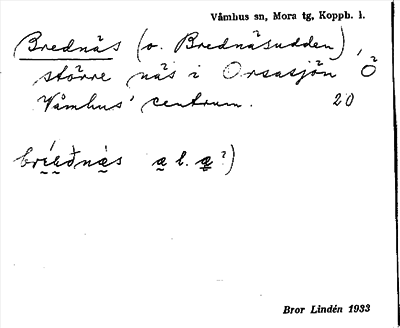 Våmhus sn, Mora tg, Koppb. l.
Brednäs (o. Brednäsudden),
större näs i Orsasjön Ö
Våmhus' centrum. 20
a l. a?)
Bror Lindén 1933